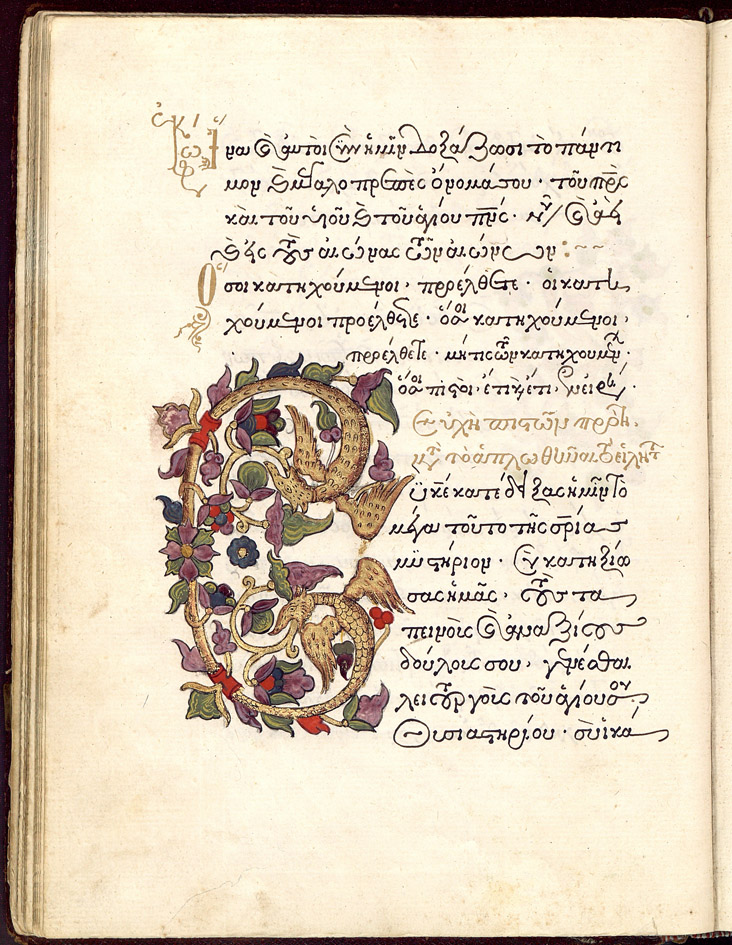 ἵνα καὶ αὐτοὶ σὺν ἡμῖν δοξάζωσι τὸ πάντι
μον καὶ μεγαλοπρεπὲς ὄνομά σου · τοῦ πρς
καὶ τοῦ υἱοῦ καὶ τοῦ ἁγίου πνς · νῦν καὶ ἀεὶ
καὶ εἰς τοὺς αἰῶνας τῶν αἰώνων :~~
Ὅσοι κατηχούμενοι · προέλθετε · οἱ κατη
χούμενοι προέλθετε · ὅσοι κατηχούμενοι ·
προέλθετε · μή τις τῶν κατηχουμέν ·
ὅσοι πιστοί · ἔτι καὶ ἔτι ·
Εὐχὴ πιστῶν πρώτη ·
μετὰ τὸ ἁπλωθῆναι τὸ εἰλητ
Σὺ κε κατέδειξας ἡμῖν τὸ
μέγα τοῦτο τῆς σρίας
μυστήριον · σὺ κατηξίω
σας ἡμᾶς · τοὺς τα
πεινοὺς καὶ ἀναξίους
δούλους σου · γενέσθαι
λειτουργοὺς τοῦ ἁγίου σου
θυσιαστηρίου · σὺ ἱκά